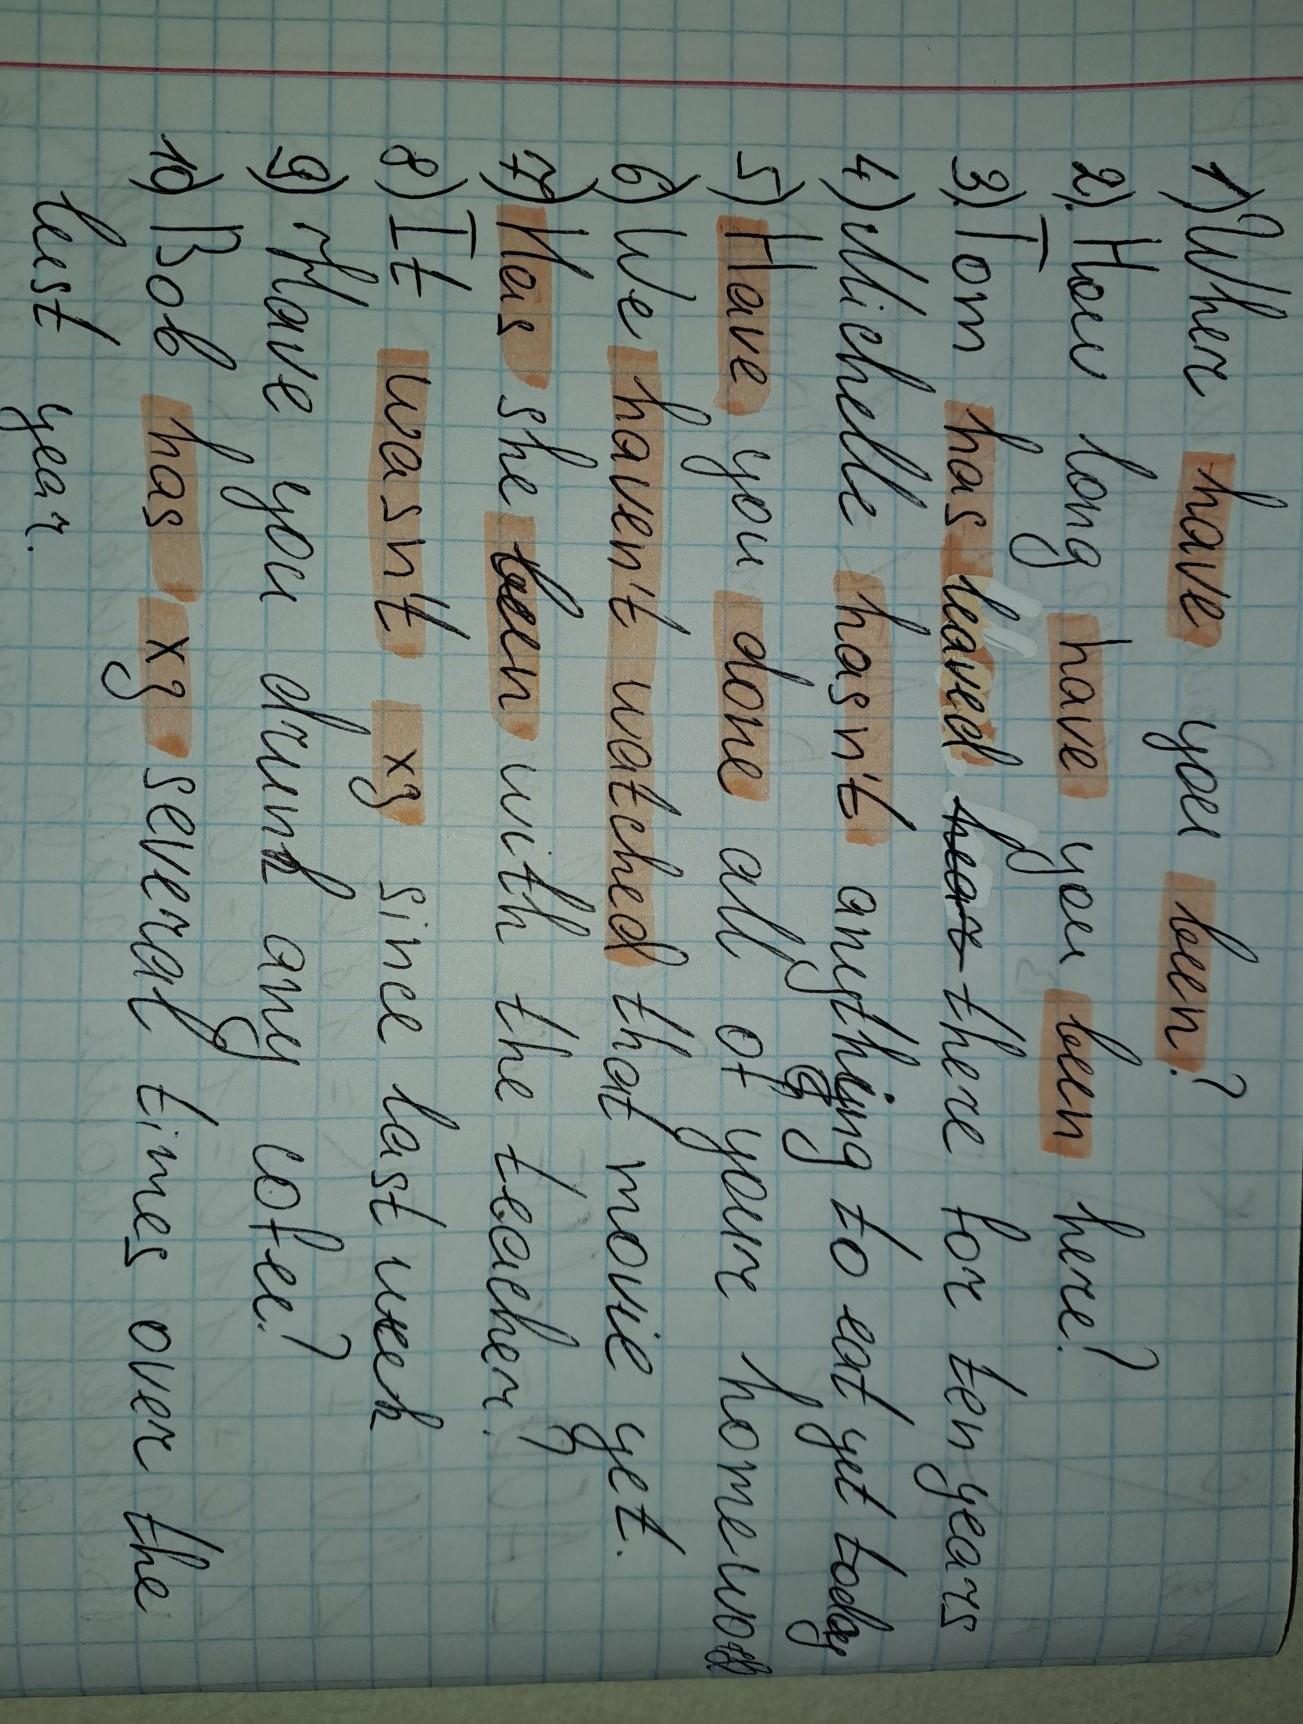 1) Wher have you been?
2). How long have you been here?
3). Tom has leaved there for ten years
4) Michelle hasn't anything to eat yet today
5) Have you done all of your homework
6) We haven't watched that movie yet.
7) Has she been with the teacher?
8) It wasn't хз since last week
9) Have you drunk any cofee?
10) Bob has хз several times over the
last year.